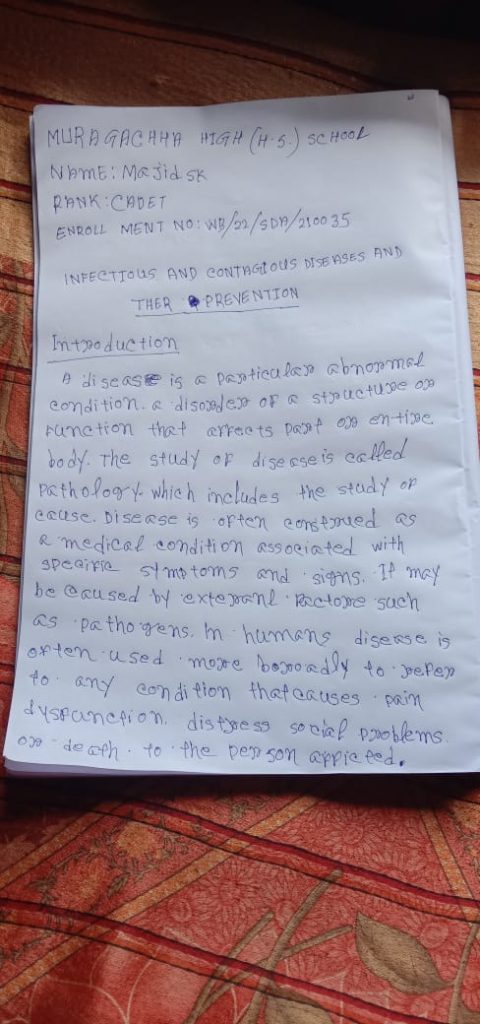 MURAGACHHA HIGH (H.S.) SCHOOL
NAME: Majid SK
RANK: CADET
ENROLL MENT NO: WB/22/SDA/210035
INFECTIOUS AND CONTAGIOUS DISEASES AND
THER PREVENTION
Introduction
A disease is a particular abnormal
condition. a disorder of a structure or
runction that affects part or entire
body. The study of disease is called
pathology. which includes the study of
cause. Disease is often construed as
a medical condition associated with
specific symptoms and signs. It may
be caused by exteranl factors such
as pathogens. In humans disease is
often used more boroadly to refer
to any condition that causes pain
dysfunction. distress social problems.
or death. to the person afficted.